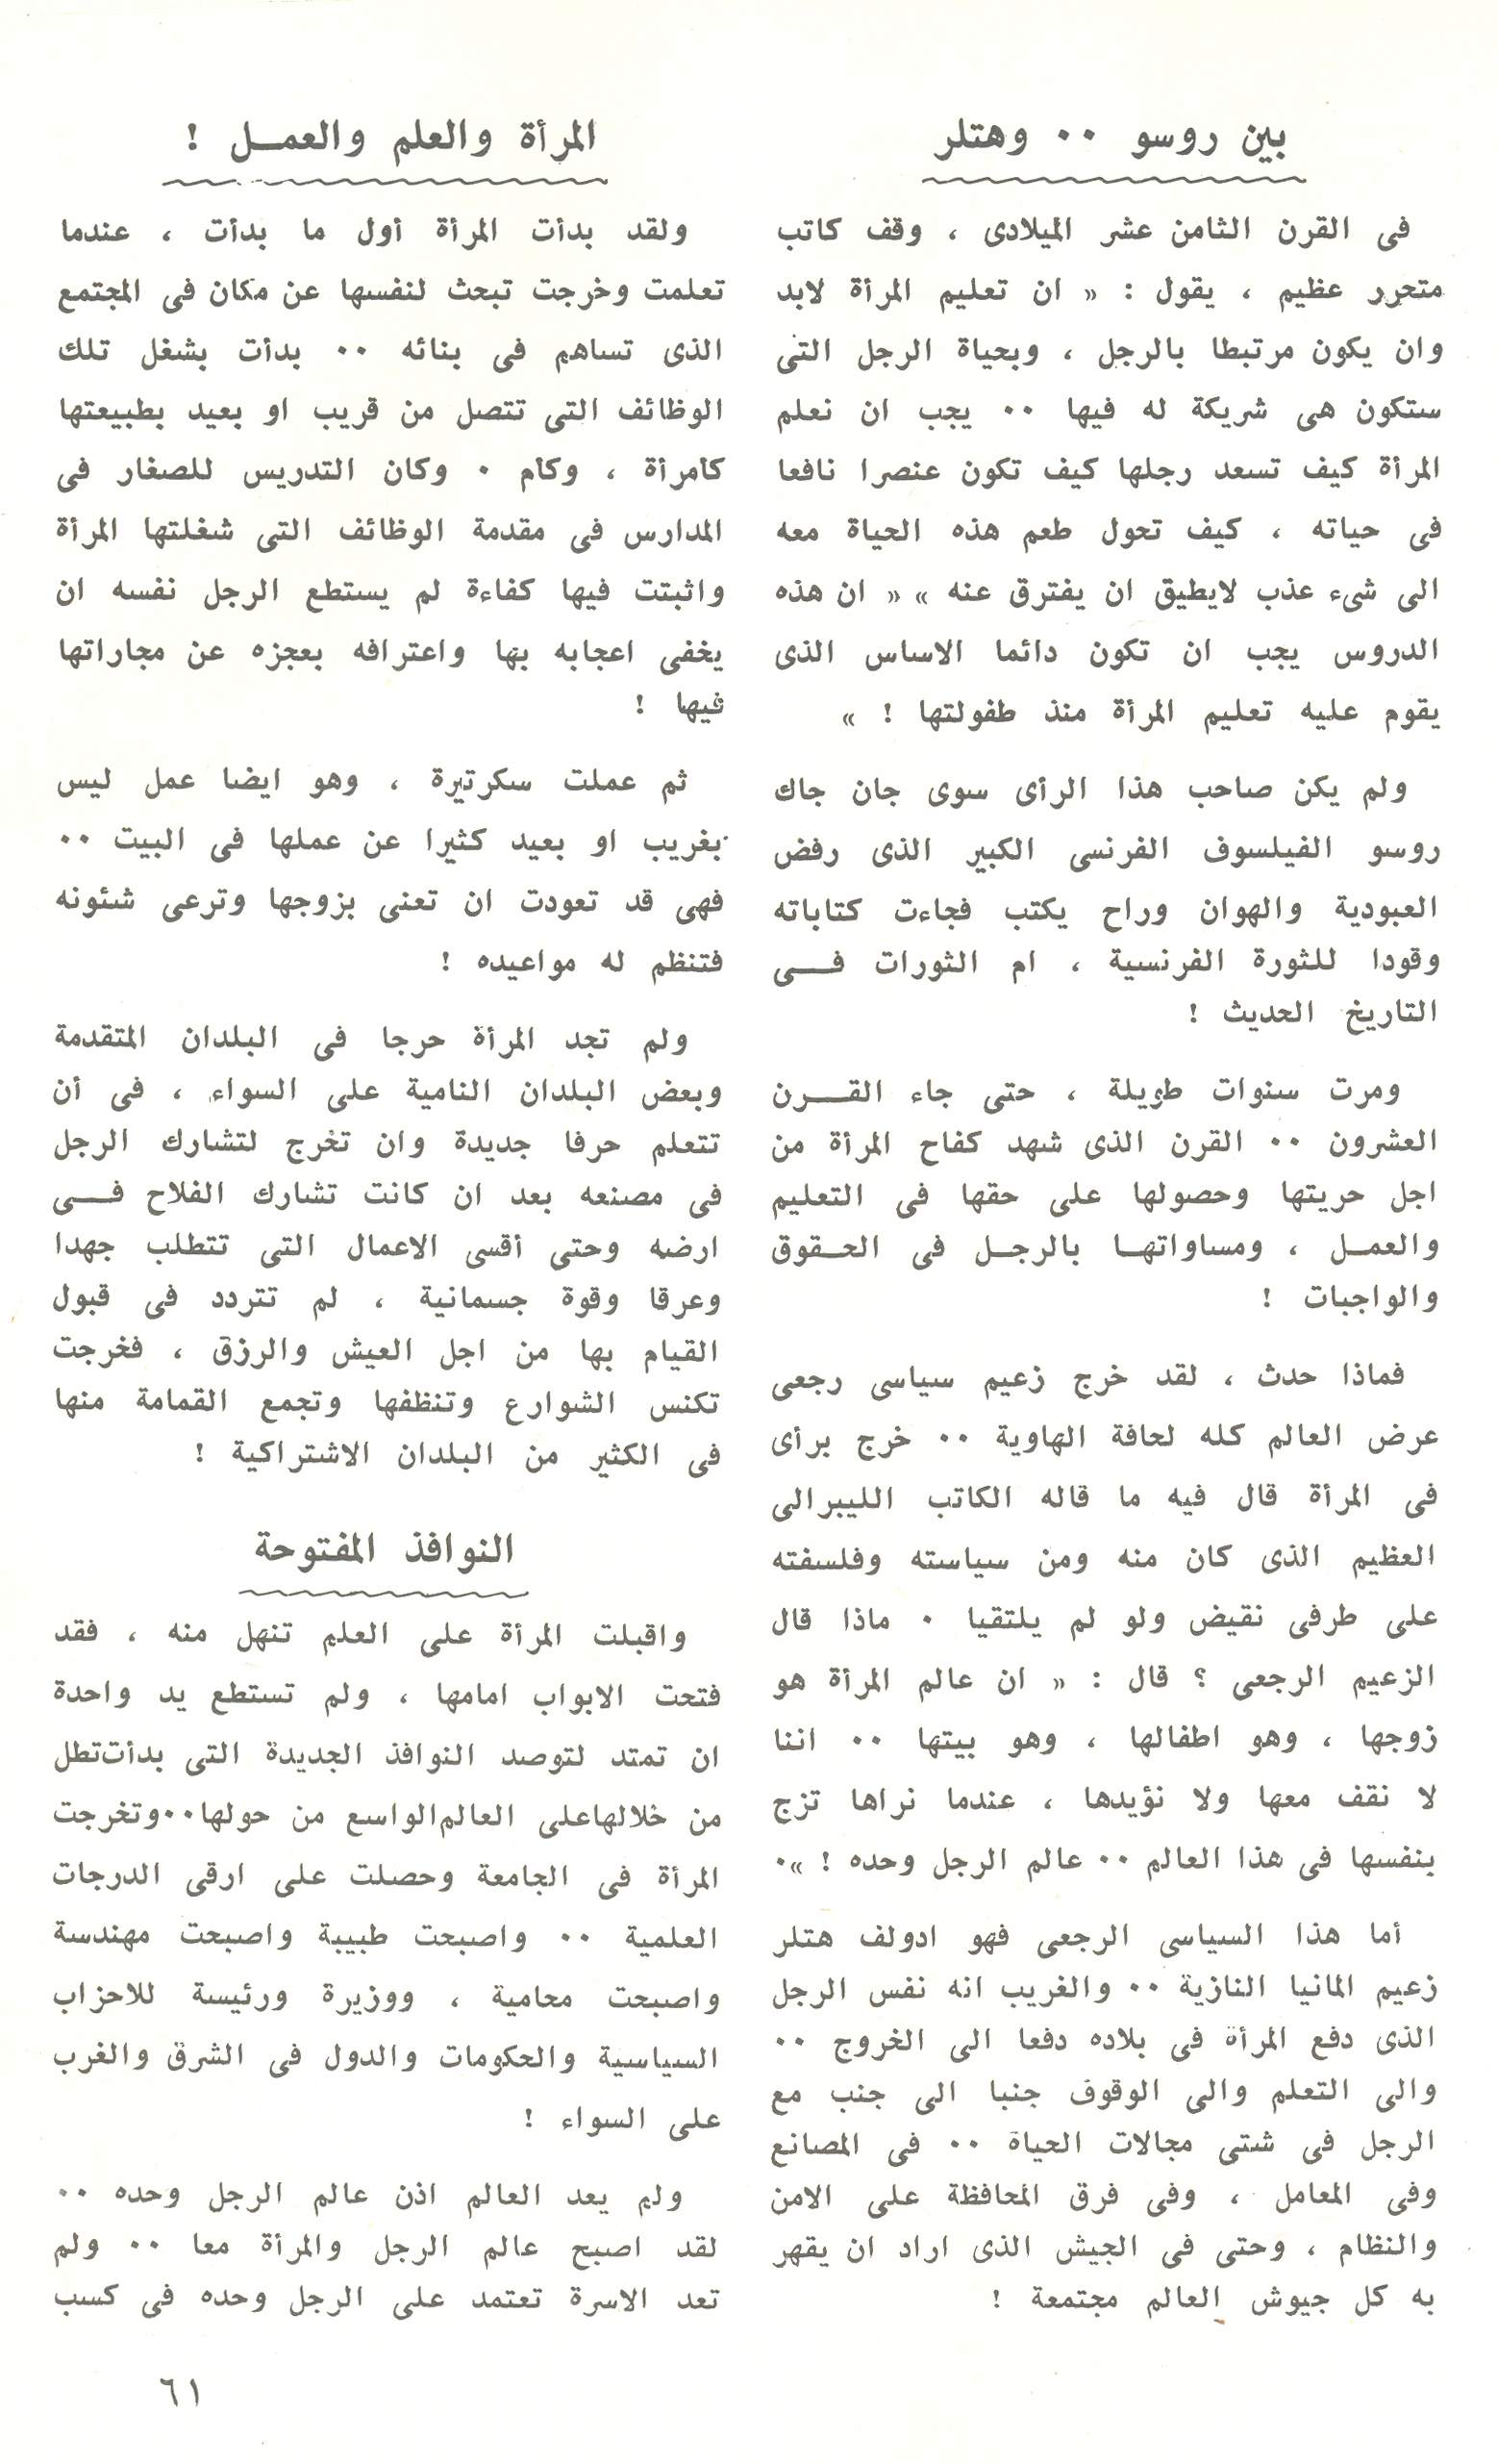 بين روسو ٠٠ وهتلر
فى القرن الثامن عشر الميلادى ، وقف كاتب
متحرر عظيم ، يقول : « ان تعليم المرأة لابد
وان يكون مرتبطا بالرجل ، وبحياة الرجل التى
ستكون هى شريكة له فيها ٠٠ يجب ان نعلم
المرأة كيف تسعد رجلها كيف تكون عنصرا نافعا
فى حياته ، كيف تحول طعم هذه الحياة معه
الى شىء عذب لايطيق ان يفترق عنه » « ان هذه
الدروس يجب ان تكون دائما الاساس الذى
يقوم عليه تعليم المرأة منذ طفولتها ! »
ولم يكن صاحب هذا الرأى سوى جان جاك
روسو الفيلسوف الفرنسى الكبير الذى رفض
العبودية والهوان وراح يكتب فجاءت كتاباته
وقودا للثورة الفرنسية ، ام الثورات فــى
التاريخ الحديث !
ومرت سنوات طويلة ، حتى جاء القــرن
العشرون ٠٠ القرن الذى شهد كفاح المرأة من
اجل حريتها وحصولها على حقها فى التعليم
والعمــل ، ومساواتهــا بالرجــل فى الحــقوق
والواجبات !
فماذا حدث ، لقد خرج زعيم سياسى رجعى
عرض العالم كله لحافة الهاوية ٠٠ خرج برأى
فى المرأة قال فيه ما قاله الكاتب الليبرالى
العظيم الذى كان منه ومن سياسته وفلسفته
على طرفى نقيض ولو لم يلتقيا ٠ ماذا قال
الزعيم الرجعى ؟ قال : « ان عالم المرأة هو
زوجها ، وهو اطفالها ، وهو بيتها ٠٠ اننا
لا نقف معها ولا نؤيدها ، عندما نراها تزج
بنفسها فى هذا العالم ٠٠ عالم الرجل وحده ! »٠
أما هذا السياسى الرجعى فهو ادولف هتلر
زعيم المانيا النازية ٠٠ والغريب انه نفس الرجل
الذى دفع المرأة فى بلاده دفعا الى الخروج ٠٠
والى التعلم والى الوقوف جنبا الى جنب مع
الرجل فى شتى مجالات الحياة ٠٠ فى المصانع
وفى المعامل ، وفى فرق المحافظة على الامن
والنظام ، وحتى فى الجيش الذى اراد ان يقهر
به كل جيوش العالم مجتمعة !
المرأة والعلم والعمــل !
ولقد بدأت المرأة أول ما بدأت ، عندما
تعلمت وخرجت تبحث لنفسها عن مكان فى المجتمع
الذى تساهم فى بنائه ٠٠ بدأت بشغل تلك
الوظائف التى تتصل من قريب او بعيد بطبيعتها
كأمرأة ، وكأم ٠ وكان التدريس للصغار فى
المدارس فى مقدمة الوظائف التى شغلتها المرأة
واثبتت فيها كفاءة لم يستطع الرجل نفسه ان
يخفى اعجابه بها واعترافه بعجزه عن مجاراتها
فيها !
ثم عملت سكرتيرة ، وهو ايضا عمل ليس
بغريب او بعيد كثيرا عن عملها فى البيت ٠٠
فهى قد تعودت ان تعنى بزوجها وترعى شئونه
فتنظم له مواعيده !
ولم تجد المرأة حرجا فى البلدان المتقدمة
وبعض البلدان النامية على السواء ، فى أن
تتعلم حرفا جديدة وان تخرج لتشارك الرجل
فى مصنعه بعد ان كانت تشارك الفلاح فــى
ارضه وحتى أقسى الاعمال التى تتطلب جهدا
وعرقا وقوة جسمانية ، لم تتردد فى قبول
القيام بها من اجل العيش والرزق ، فخرجت
تكنس الشوارع وتنظفها وتجمع القمامة منها
فى الكثير من البلدان الاشتراكية !
النوافذ المفتوحة
واقبلت المرأة على العلم تنهل منه ، فقد
فتحت الابواب امامها ، ولم تستطع يد واحدة
ان تمتد لتوصد النوافذ الجديدة التى بدأت‌تطل
من خلالهاعلى العالم‌الواسع من حولها٠٠وتخرجت
المرأة فى الجامعة وحصلت على ارقى الدرجات
العلمية ٠٠ واصبحت طبيبة واصبحت مهندسة
واصبحت محامية ، ووزيرة ورئيسة للاحزاب
السياسية والحكومات والدول فى الشرق والغرب
على السواء !
ولم يعد العالم اذن عالم الرجل وحده ٠٠
لقد اصبح عالم الرجل والمرأة معا ٠٠ ولم
تعد الاسرة تعتمد على الرجل وحده فى كسب
٦١